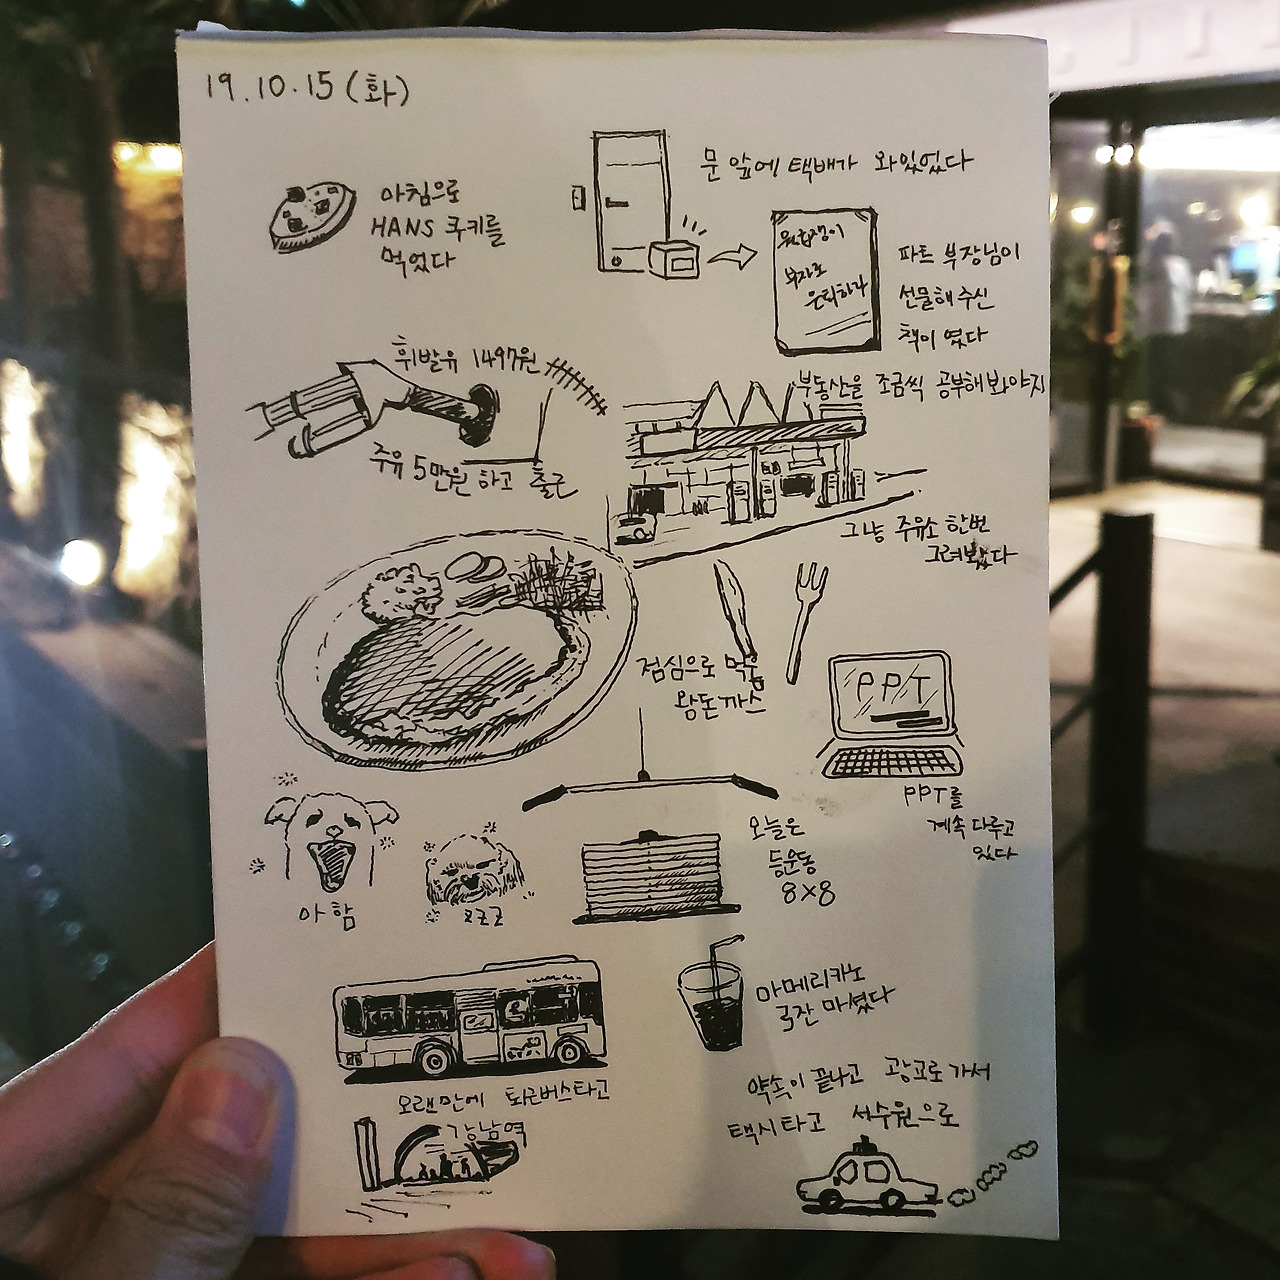 19.10.15 (화)
아침으로
HANS 쿠키를
먹었다
문 앞에 택배가 와있었다
월급쟁이
부자로
은퇴하라
파트 부장님이
선물해 주신
책이 였다
부동산을 조금씩 공부해봐야지
휘발유 1497원
주유 5만원 하고 출근
그냥 주유소 한번
그려봤다
점심으로 먹은
왕돈까스
PPT
PPT를
계속 다루고
있다
아함
오늘은
등운동
8×8
아메리카노
국잔 마셨다
오랜만에 퇴근버스타고
강남역
약속이 끝나고 광교로 가서
택시타고 서수원으로